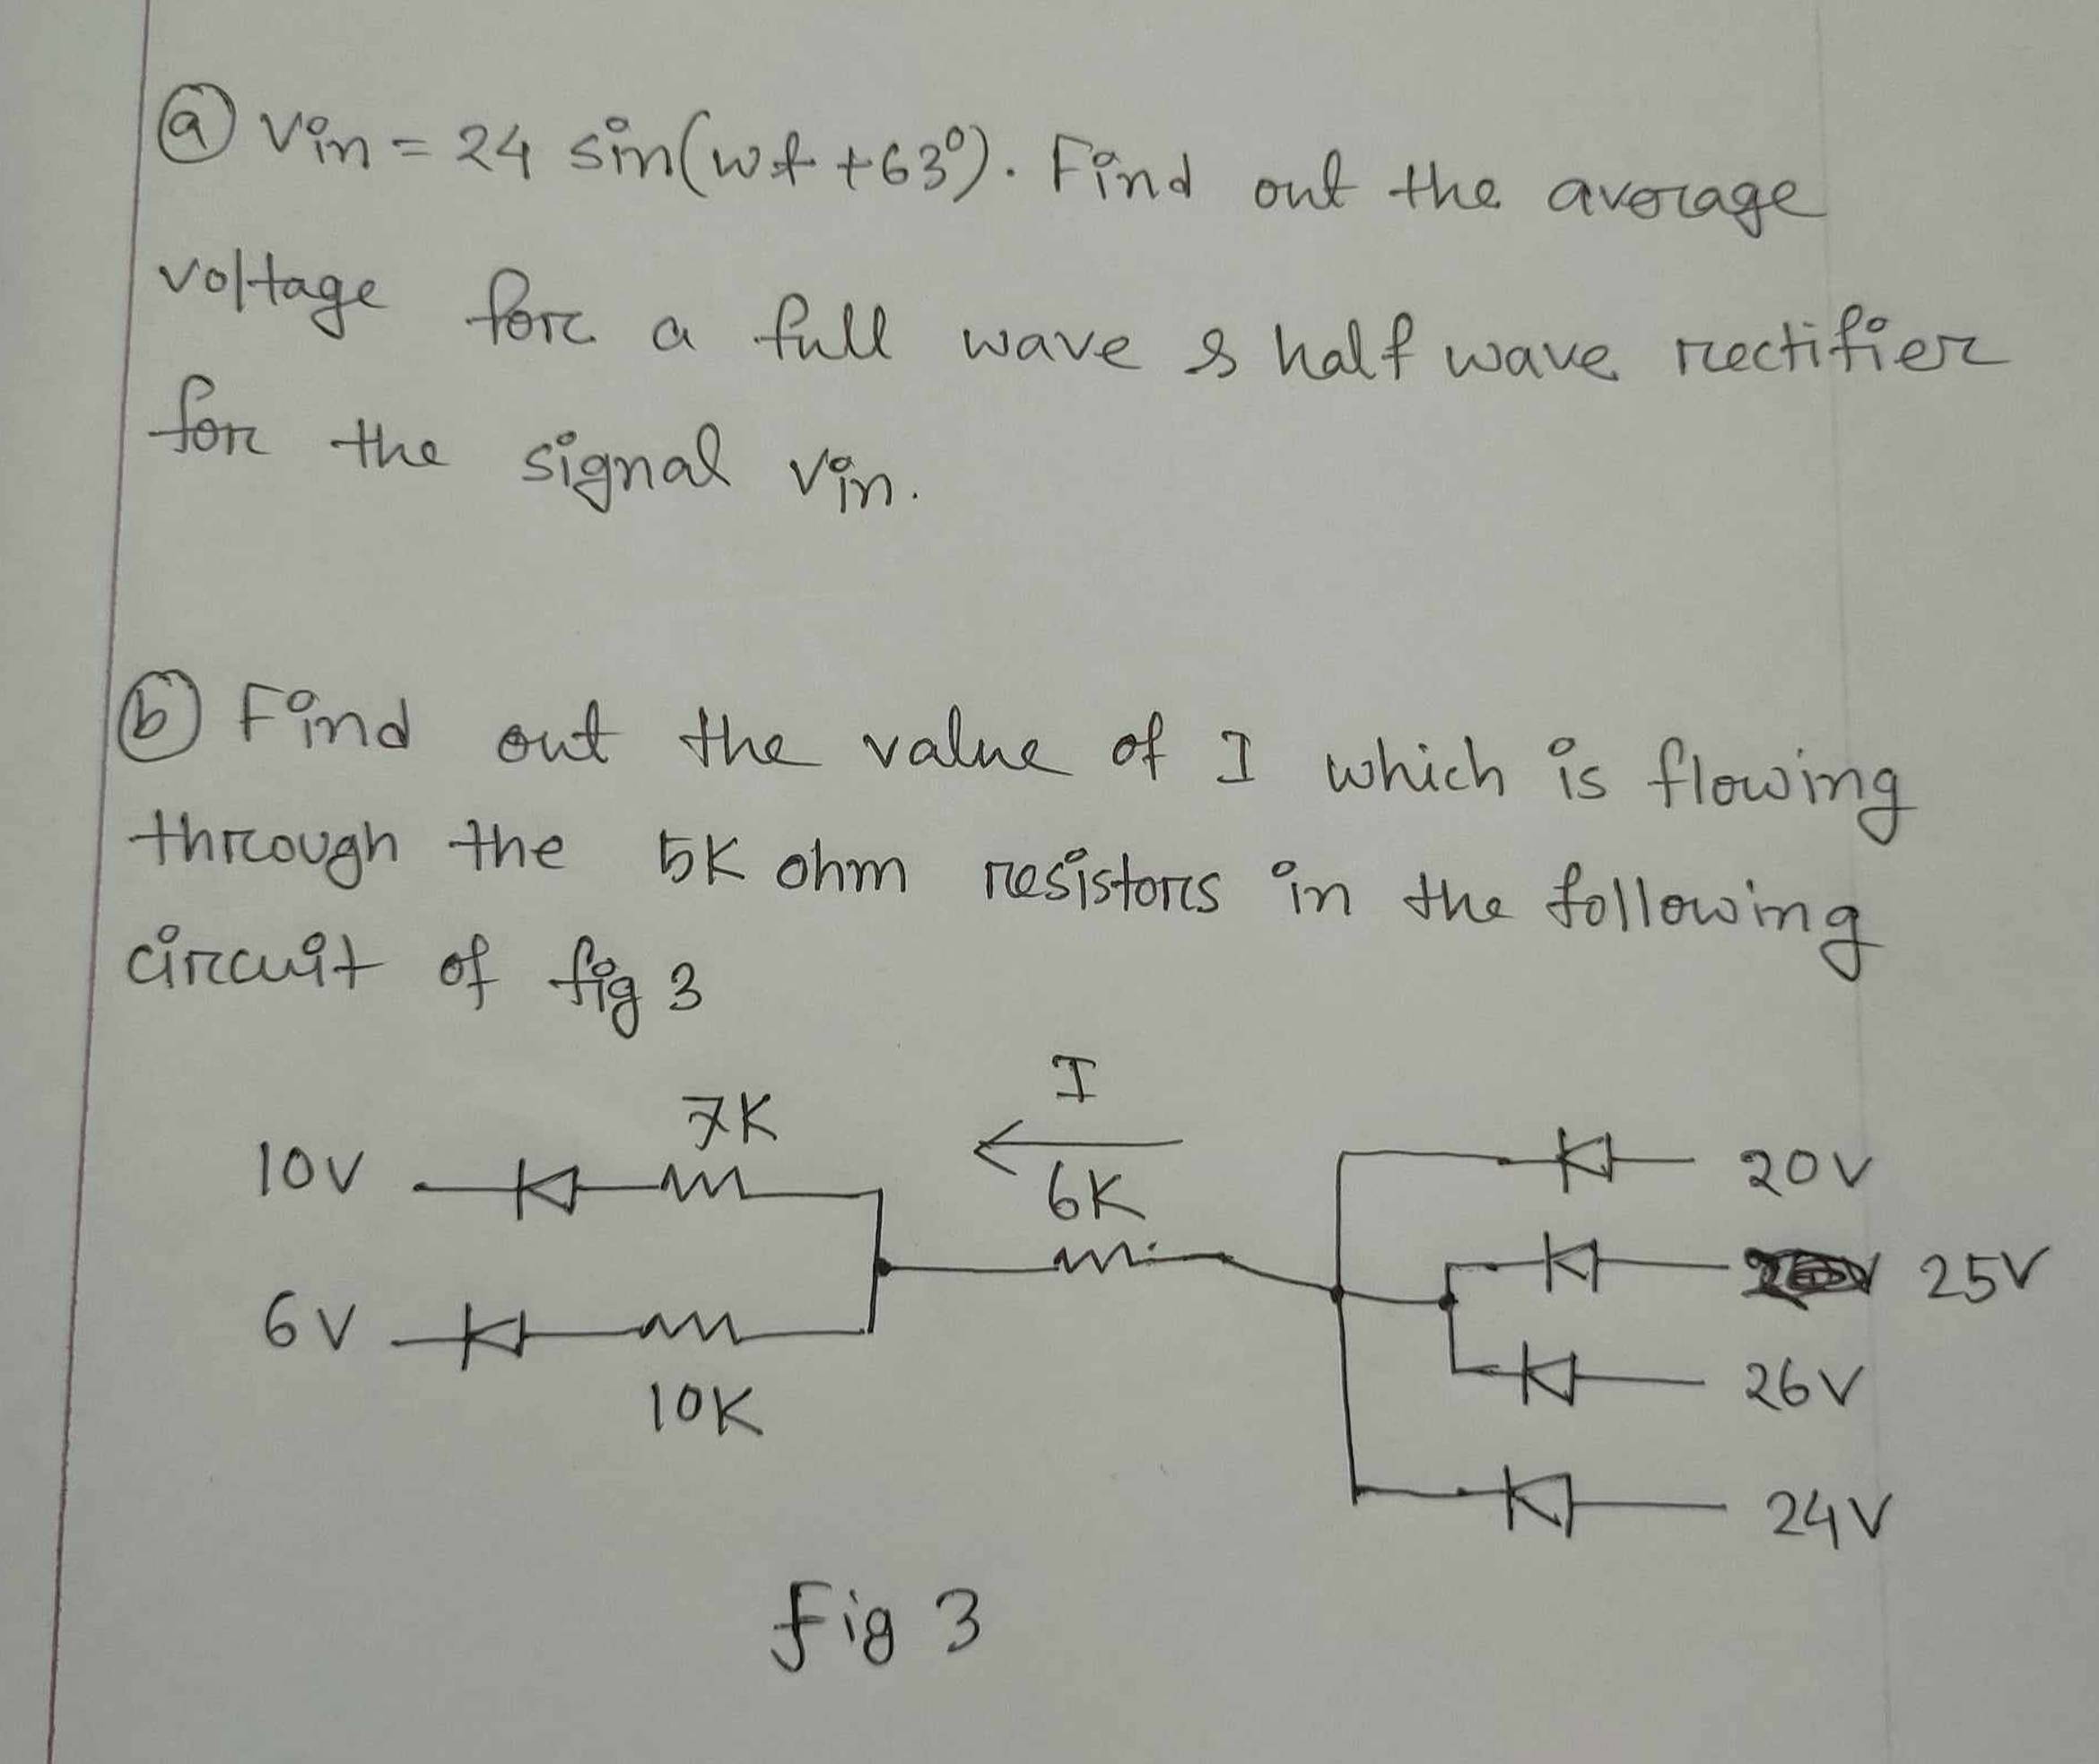 ⓐ Vin = 24 sin(wt +63°). Find out the average
voltage for a full wave & half wave rectifier
for the signal Vin.
ⓑ Find out the value of I which is flowing
through the 5K ohm resistors in the following
circuit of fig 3
I
7K
10V
6K
20V
25V
6V
26V
10K
24V
fig 3